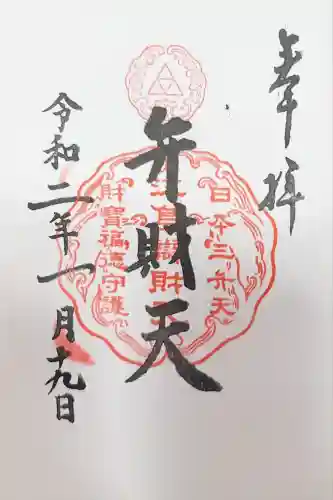 奉拝
日本三弁天
弁財天
財寶福德守護
令和二年一月十九日